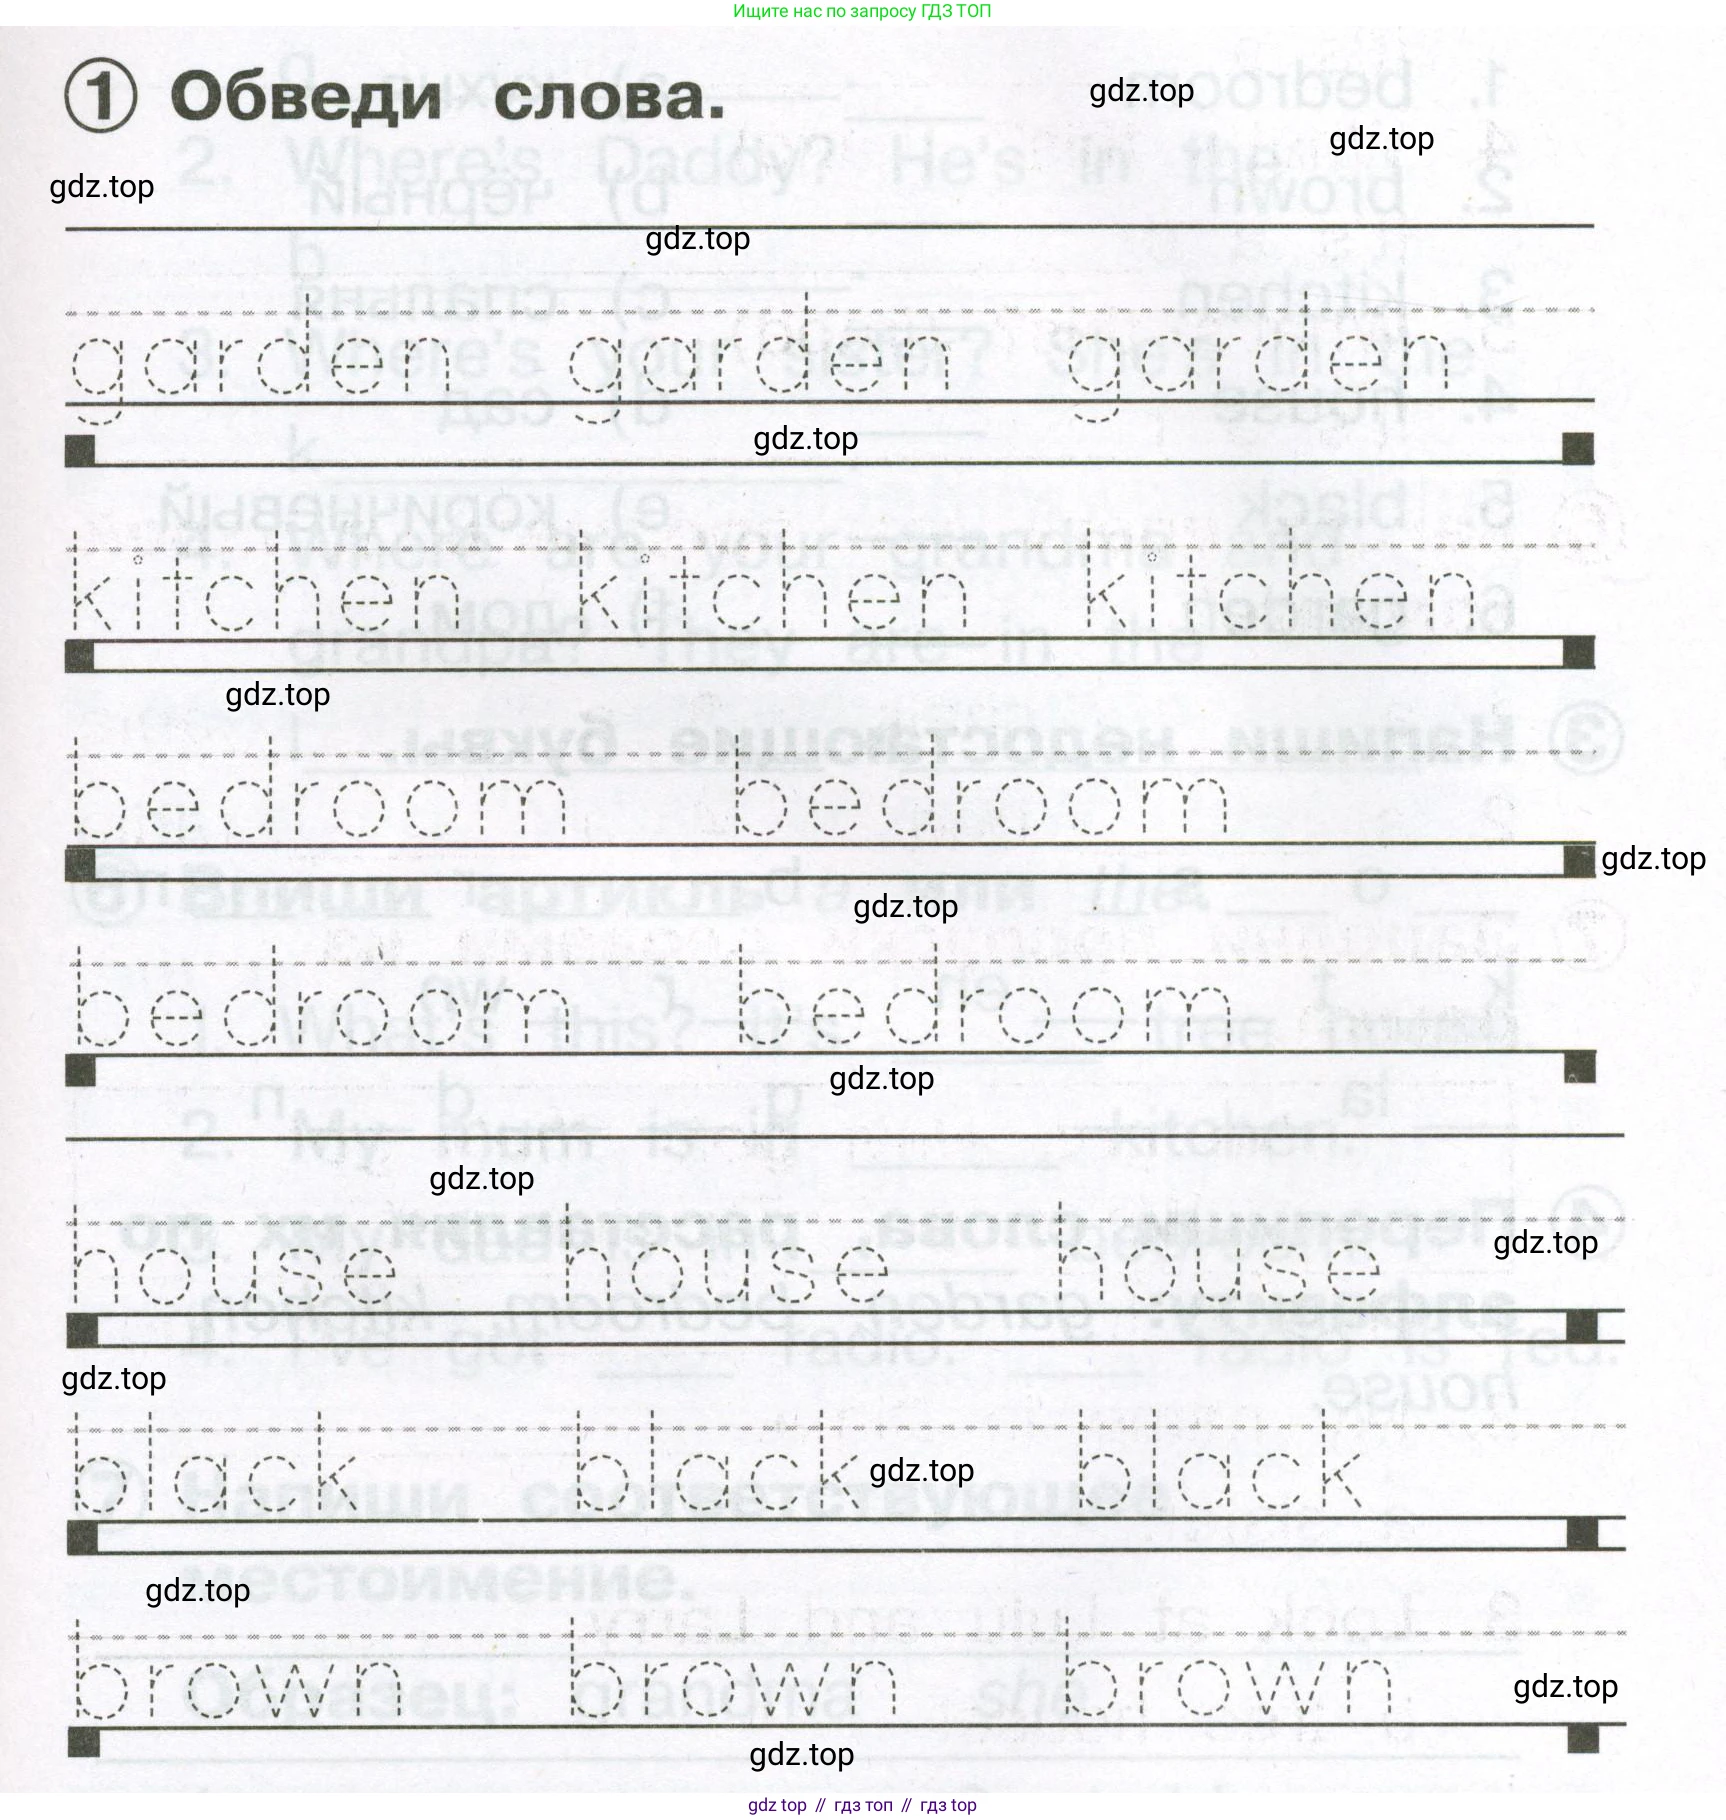 Ищите нас по запросу ГДЗ ТОП
1 Обведи слова.
gdz.top
gdz.top
gdz.top
gdz.top
garden garden garden
gdz.top
kitchen kitchen kitchen
gdz.top
bedroom bedroom
gdz.top
gdz.top
bedroom bedroom
gdz.top
gdz.top
house house house
gdz.top
gdz.top
black black black
gdz.top
gdz.top
brown brown brown
gdz.top
gdz.top
gdz top // гдз топ // гдз top